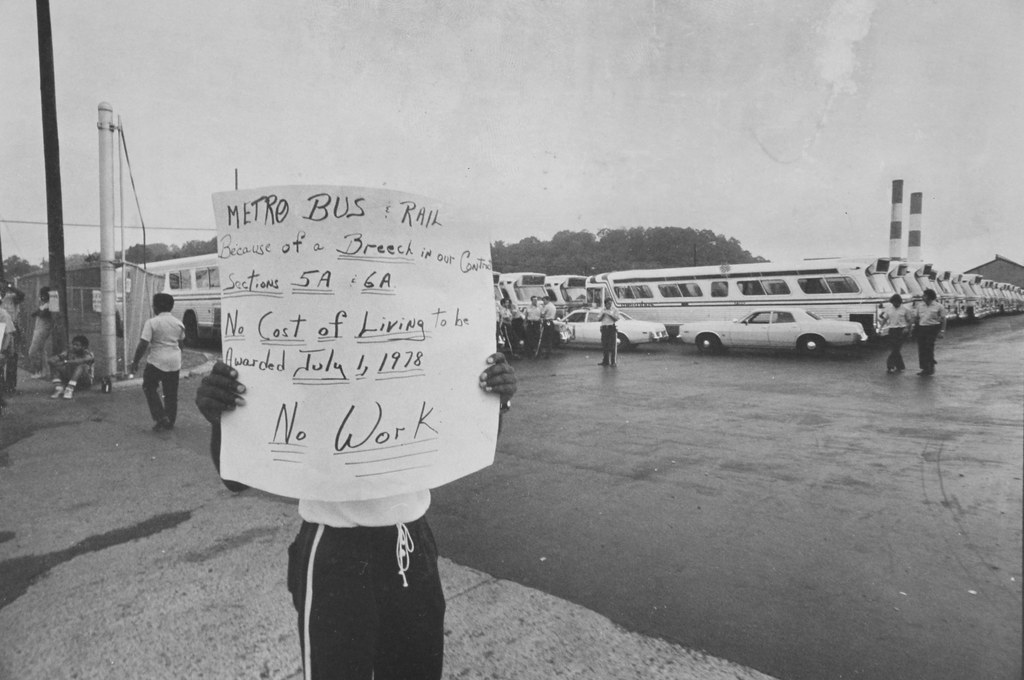 METRO BUS & RAIL
Because of a Breech in our Contr
Sections 5A & 6A
No Cost of Living to be
Awarded July 1, 1978
No Work